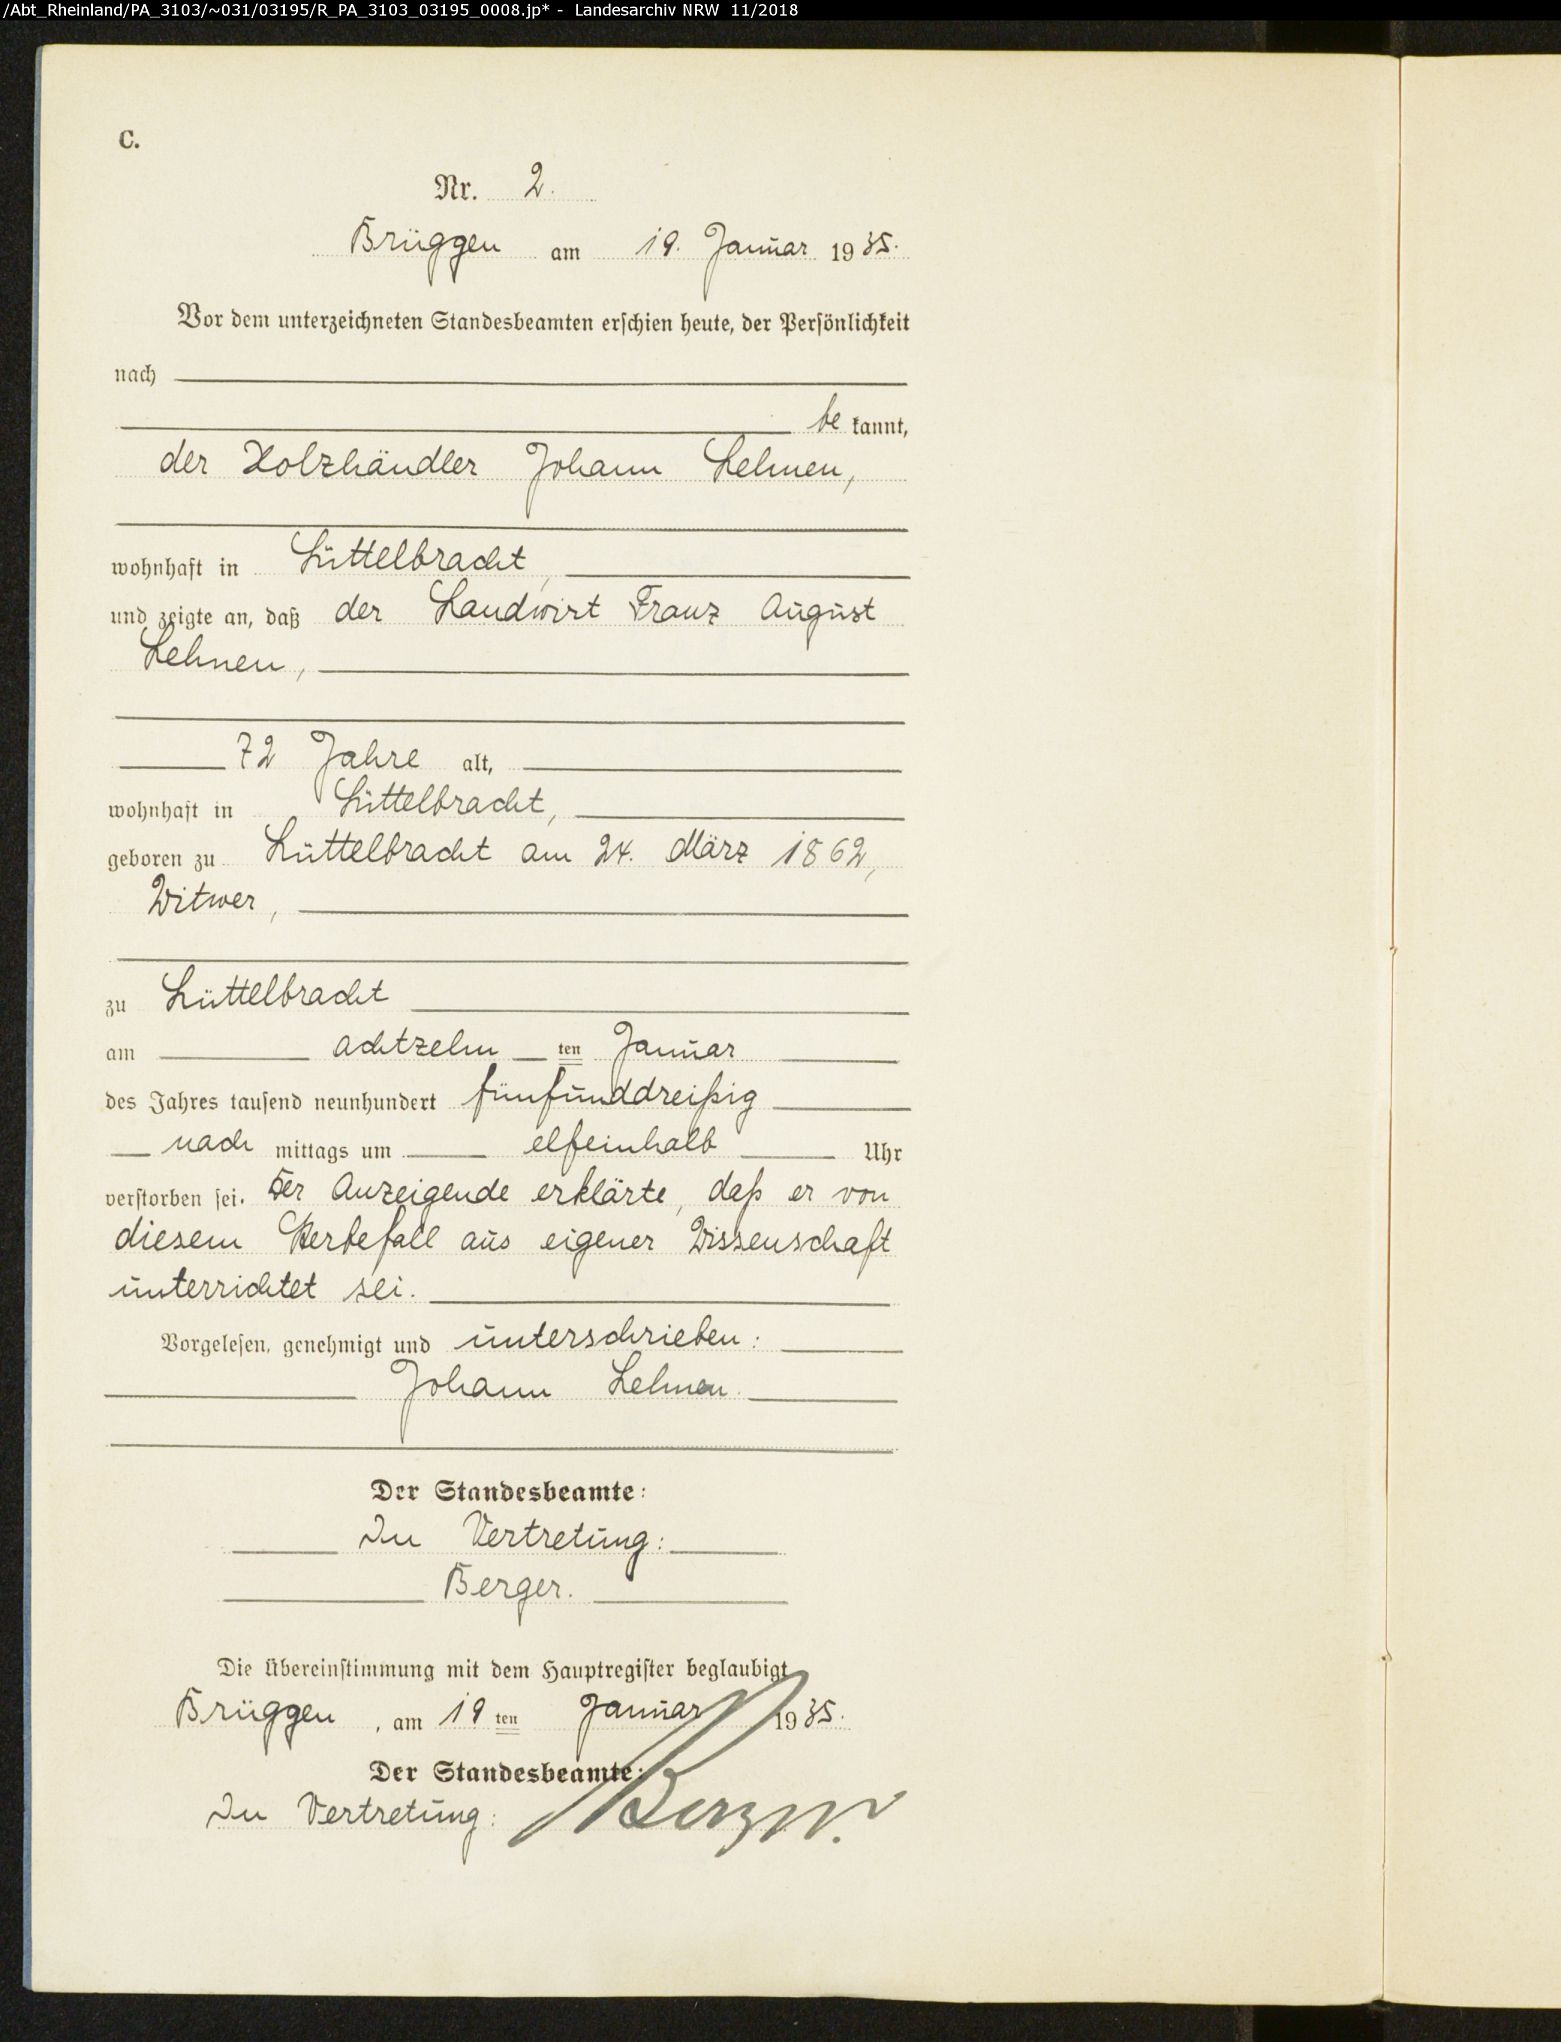 /Abt_Rheinland/PA_3103/~031/03195/R_PA_3103_03195_0008.jp* - Landesarchiv NRW 11/2018
C.
Nr. 2.
Brüggen am 19. Januar 1935.
Vor dem unterzeichneten Standesbeamten erschien heute, der Persönlichkeit
nach
be kannt,
der Holzhändler Johann Lehnen,
wohnhaft in Lüttelbracht,
und zeigte an, daß der Landwirt Franz August
Lehnen,
72 Jahre alt,
wohnhaft in Lüttelbracht,
geboren zu Lüttelbracht am 24. März 1862,
Witwer,
zu Lüttelbracht
am achtzehn ten Januar
des Jahres tausend neunhundert fünfunddreißig
nach mittags um elfeinhalb Uhr
verstorben sei. Der Anzeigende erklärte, daß er von
diesem Sterbefall aus eigener Wissenschaft
unterrichtet sei.
Vorgelesen, genehmigt und unterschrieben:
Johann Lehnen.
Der Standesbeamte:
In Vertretung:
Berger.
Die Übereinstimmung mit dem Hauptregister beglaubigt
Brüggen, am 19 ten Januar 1935.
Der Standesbeamte:
In Vertretung: Berger.